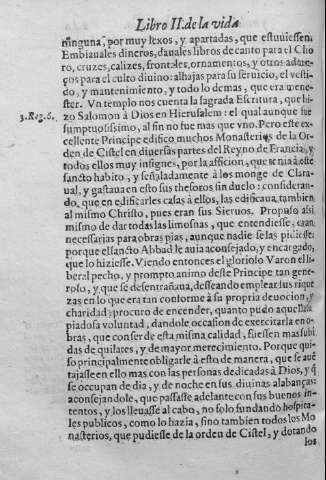 Libro II. de la vida
ninguna, por muy lexos, y apartadas, que estuuiessen.
Embiauales dineros, daуales libros de canto para el Cho
ro, cruzes, calizes, frontales, ornamentos, y otros adere-
ços para el culto diuino: alhajas para su seruicio, el vesti-
do, y mantenimiento, y todo lo demas, que era mene-
ster. Vn templo nos cuenta la sagrada Escritura, que hi-
3. Reg. 6. zo Salomon à Dios en Hierusalem: el qual aunque fue
sumptuosissimo, al fin no fue mas que vno. Pero este ex-
cellente Principe edifico muchos Monasterios de la Or-
den de Cistel en diuersas partes del Reyno de Francia, y
todos ellos muy insignes, por la afficion, que tenia à este
sancto habito, y señaladamente à los monge de Clara-
ual, y gastaua en esto sus thesoros sin duelo: consideran-
do, que en edificarles casas à ellos, las edificaua tambien
al mismo Christo, pues eran sus Sieruos. Propuso asi
mismo de dar todas las limosnas, que entendiesse, eran
necessarias para obras pias, aunque nadie se las pidiesse:
porque el sancto Abbad le auia aconsejado, y encargado,
que lo hiziesse. Viendo entonces el glorioso Varon el li-
beral pecho, y prompto animo deste Principe tan gene-
roso, y que se desentrañaua, desseando emplear sus rique
zas en lo que era tan conforme à su propria deuocion, y
charidad; procuro de encender, quanto pudo aquella
piadosa voluntad, dandole occasion de exercitarla en o-
bras, que con ser de esta misma calidad, fuessen mas subi-
das de quilates, y de mayor merecimiento. Porque qui-
so principalmente obligarle à esto de manera, que se auē
tajasse en ello mas con las personas dedicadas à Dios, y q̃
se occupan de dia, y de noche en sus diuinas alabanças:
aconsejandole, que passasse adelante con sus buenos in-
tentos, y los lleuasse al cabo, no solo fundando hospita-
les publicos, como lo hazia, sino tambien todos los Mo
nasterios, que pudiesse de la orden de Cistel, y dotando
los